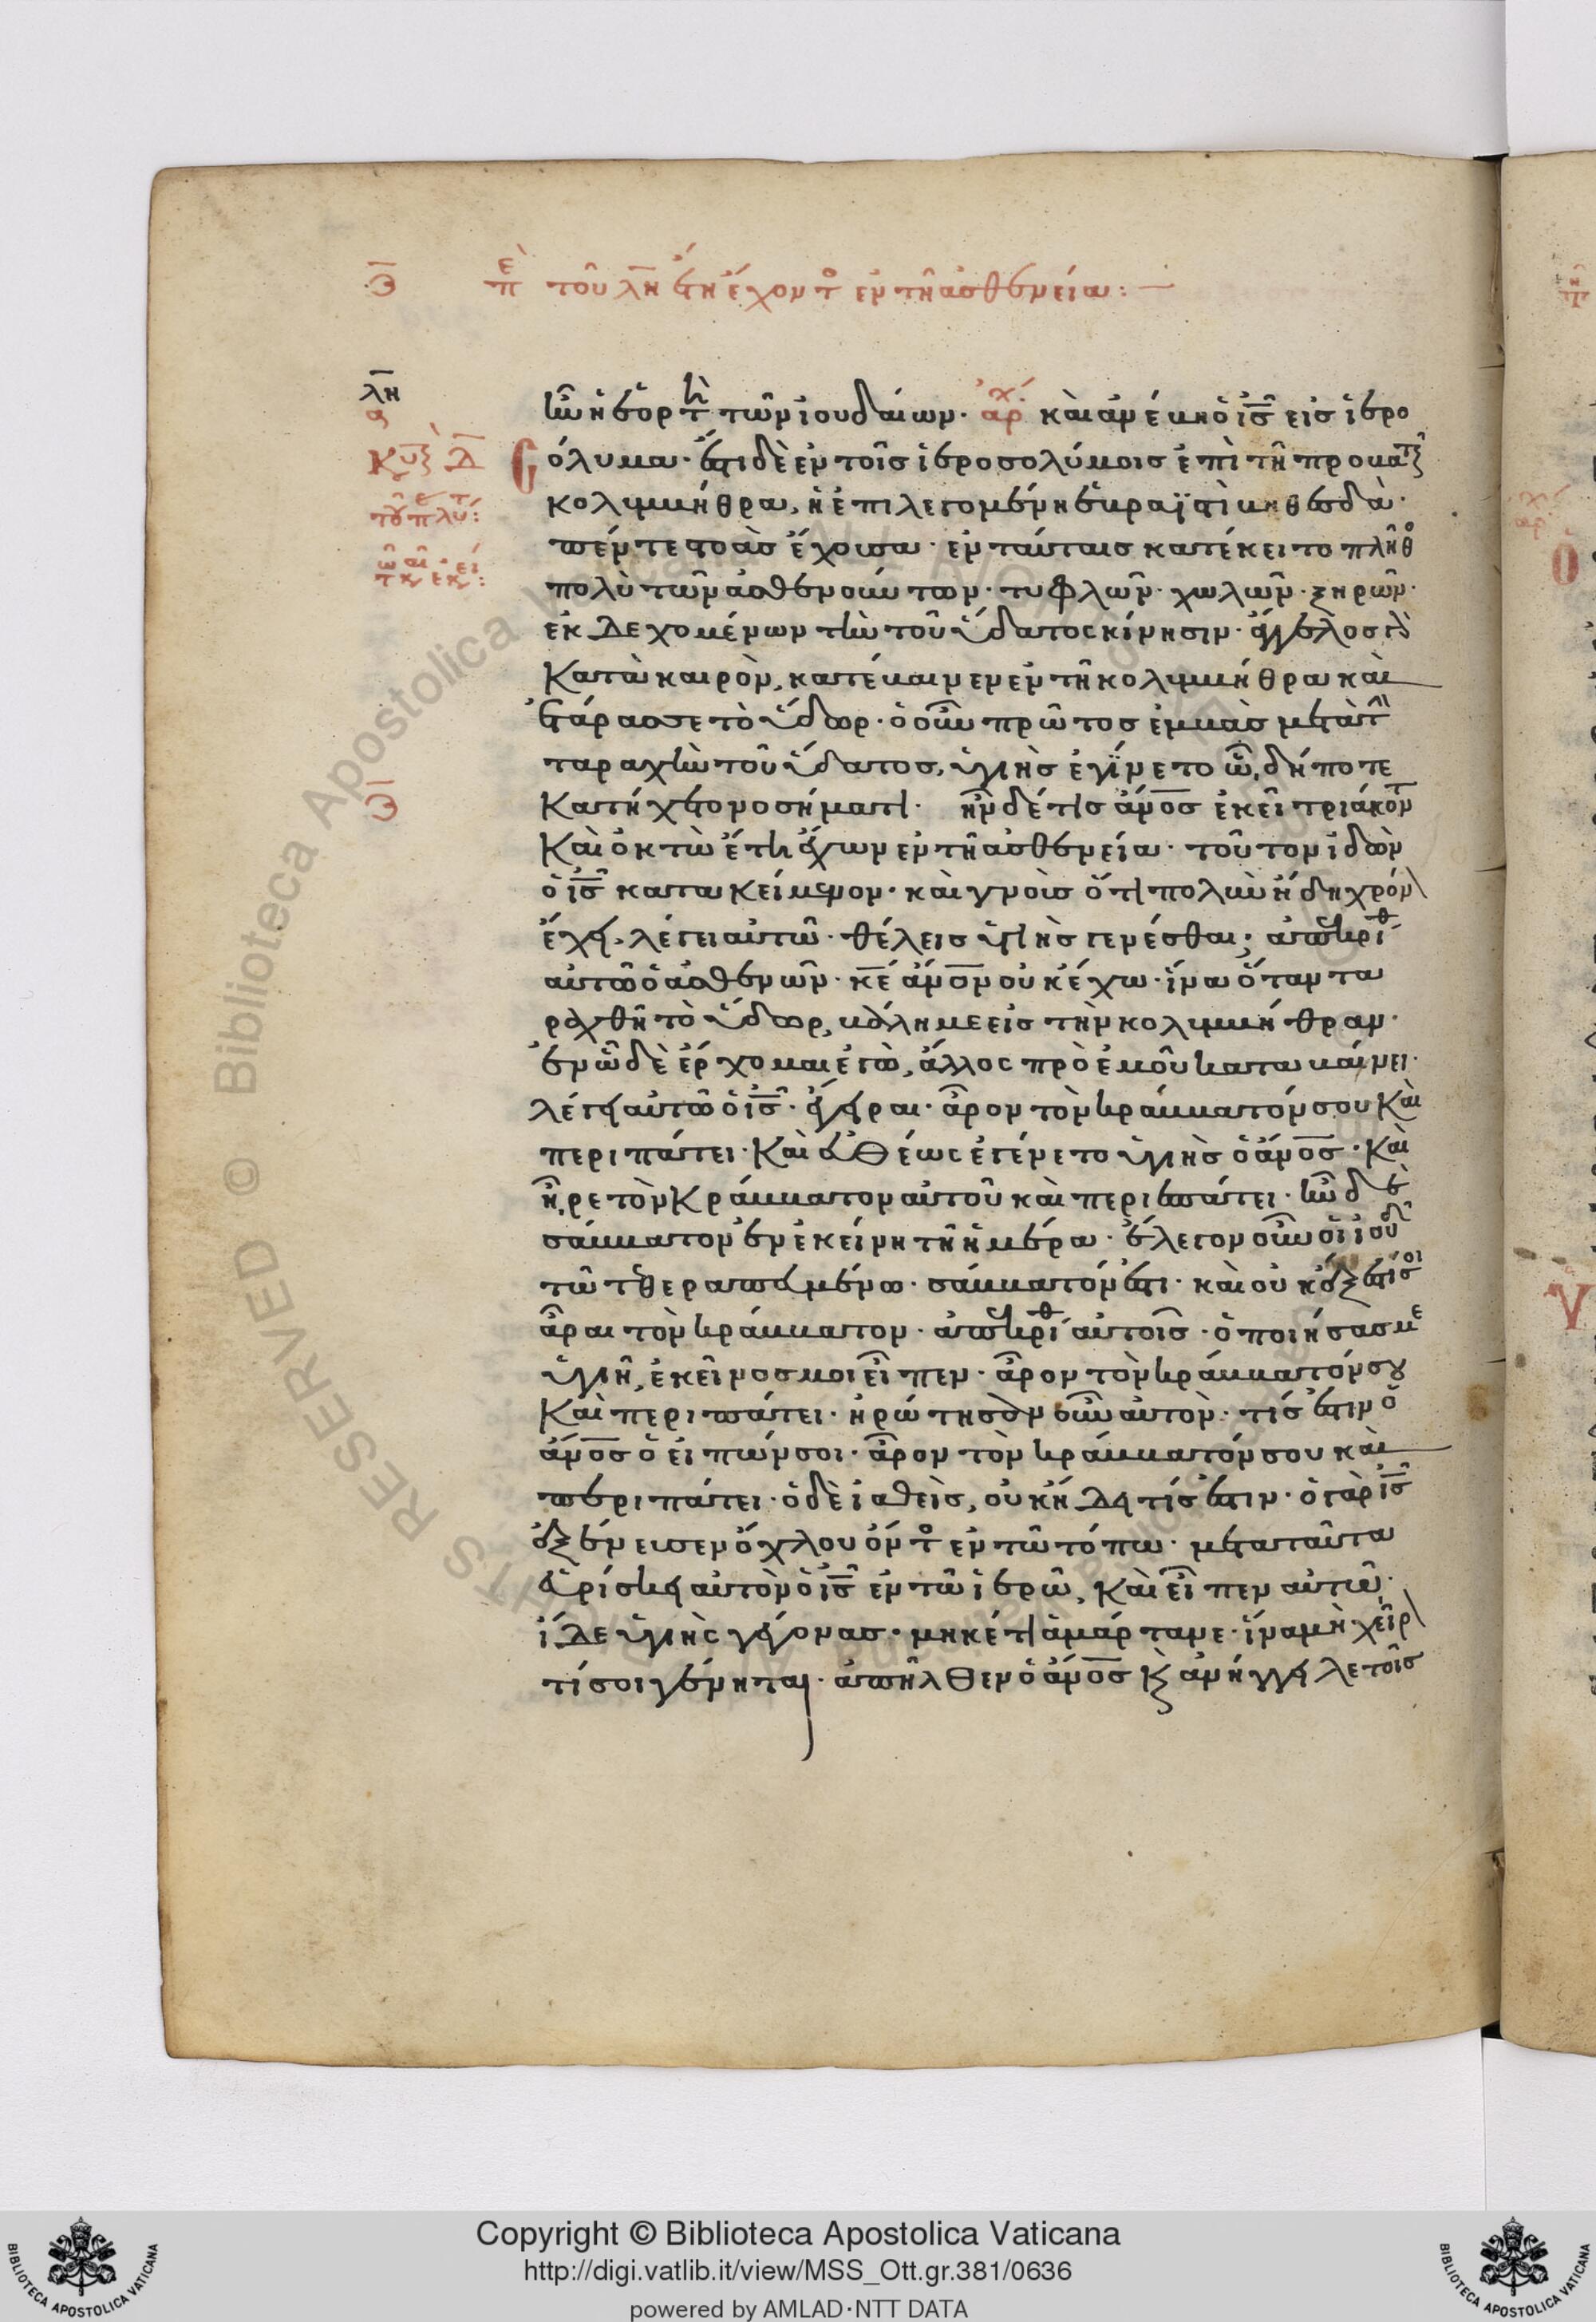 ω̅ πε τοῦ λη̅ ἔτη ἔχοντο ἐν τῆ ἀσθενεία :—
λη̅
α
ἦν ἡ ἑορτὴ τῶν ἰουδαίων· ἀρχ καὶ ἀνέβη ὁ ις̅ εἰς ἱερο
Κυ Δ̅
σόλυμα· Ἔστι δὲ ἐν τοῖς ἱεροσολύμοις ἐπὶ τῆ προβατικ
τοῦ
κολυμβήθρα, ἡ ἐπιλεγομένη ἑβραϊστὶ βηθεσδὰ·
πέντε στοὰς ἔχουσα· ἐν ταύταις κατέκειτο πλῆθο
πολὺ τῶν ἀσθενούντων· τυφλῶν· χωλῶν· ξηρῶν·
ἐκδεχομένων τὴν τοῦ ὕδατος κίνησιν· ἄγγελος δὲ
κατὰ καιρὸν, κατέβαινεν ἐν τῆ κολυμβήθρα καὶ
ἐτάρασσε τὸ ὕδωρ· ὁ οὖν πρῶτος ἐμβὰς μετὰ τὴν
ταραχὴν τοῦ ὕδατος, ὑγιὴς ἐγίνετο ὧ, δήποτε
ω̅
κατήχετο νοσήματι· ἦν δέ τις ἄνος̅ ἐκεῖ τριάκοντ
καὶ ὀκτὼ ἔτη ἔχων ἐν τῆ ἀσθενεία· τοῦτον ἰδὼν
ὁ ις̅ κατακείμενον· καὶ γνοὺς ὅτι πολὺν ἤδη χρόν
ἔχει, λέγει αὐτῶ· θέλεις ὑγιὴς γενέσθαι; ἀπεκρίθ
αὐτῶ ὁ ἀσθενῶν· κε̅ ἄνον̅ οὐκ ἔχω· ἵνα ὅταν τα
ραχθῆ τὸ ὕδωρ, βάλη με εἰς τὴν κολυμβήθραν·
ἐν ὧ δὲ ἔρχομαι ἐγὼ, ἄλλος πρὸ ἐμοῦ καταβαίνει·
λέγει αὐτῶ ὁ ις̅· ἔγειραι· ἆρον τὸν κράββατόν σου καὶ
περιπάτει· καὶ εὐθέως ἐγένετο ὑγιὴς ὁ ἄνος̅· καὶ
ἦρε τὸν κράββατον αὐτοῦ καὶ περιεπάτει· ἦν δὲ
σάββατον ἐν ἐκείνη τῆ ἡμέρα· ἔλεγον οὖν οἱ ἰουδ
τῶ τεθεραπευμένω· σάββατόν ἐστι· καὶ οὐκ ἔξεστί σοι
ἆραι τὸν κράββατον· ἀπεκρίθ αὐτοῖς· ὁ ποιήσας με
ὑγιῆ, ἐκεῖνος μοι εἶπεν· ἆρον τὸν κράββατόν σου
καὶ περιπάτει· ἠρώτησαν οὖν αὐτὸν· τίς ἐστιν ὁ
ἄνος̅ ὁ εἰπών σοι· ἆρον τὸν κράββατόν σου καὶ
περιπάτει· ὁ δὲ ἰαθεὶς, οὐκ ἤδει τίς ἐστιν· ὁ γὰρ ις̅
ἐξένευσεν ὄχλου ὄντο ἐν τῶ τόπω· μετὰ ταῦτα
εὑρίσκει αὐτὸν ὁ ις̅ ἐν τῶ ἱερῶ, καὶ εἶπεν αὐτῶ·
ἴδε ὑγιὴς γέγονας· μηκέτι ἁμάρτανε· ἵνα μὴ χεῖρ
τί σοι γένηται· ἀπῆλθεν ὁ ἄνος̅ κ ἀνήγγειλε τοῖς
Copyright © Biblioteca Apostolica Vaticana
http://digi.vatlib.it/view/MSS_Ott.gr.381/0636
powered by AMLAD·NTT DATA